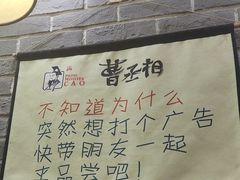 CAO
曹丞相
不知道为什么
突然想打个广告
快带朋友一起
来品尝吧!